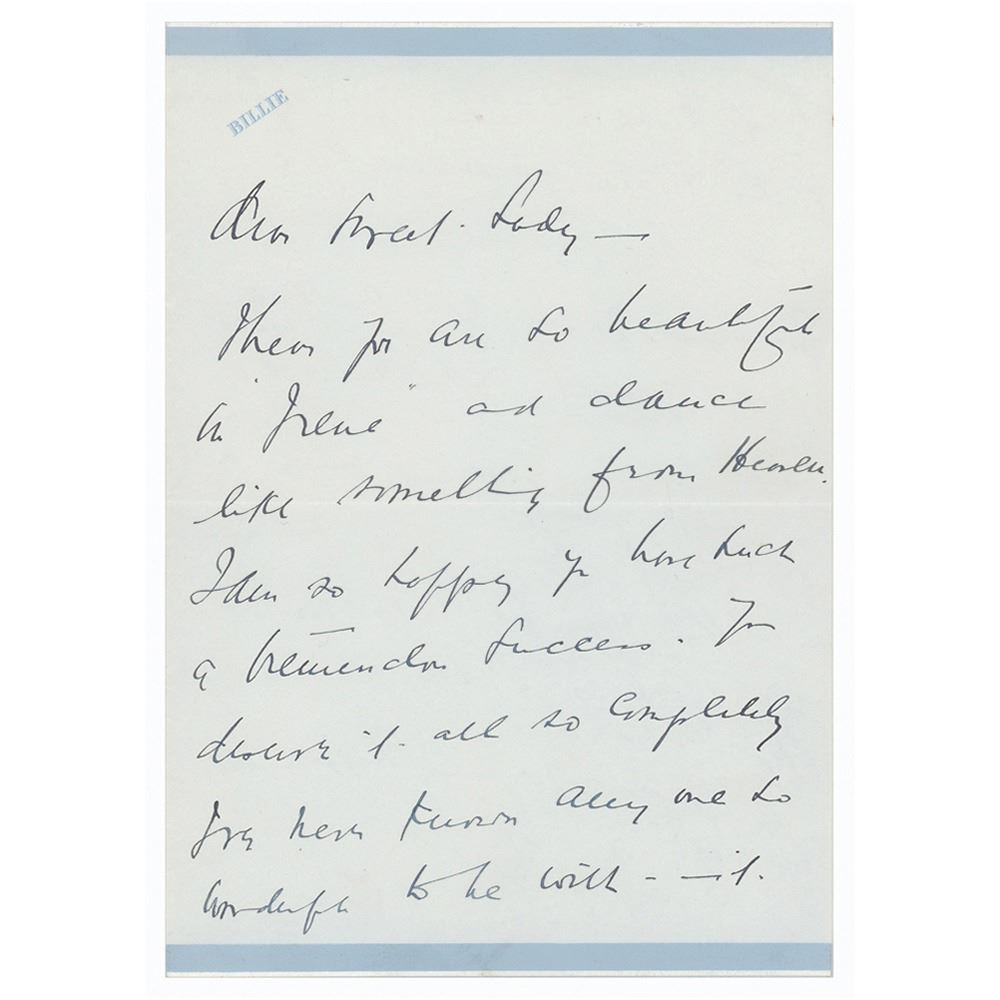 BILLIE
Dear Sweet Lady —
you are so beautiful
in "Irene" and dance
like something from Heaven.
I am so happy you have such
a tremendous success. You
deserve it all so completely
I've never known any one so
wonderful to be with — it.